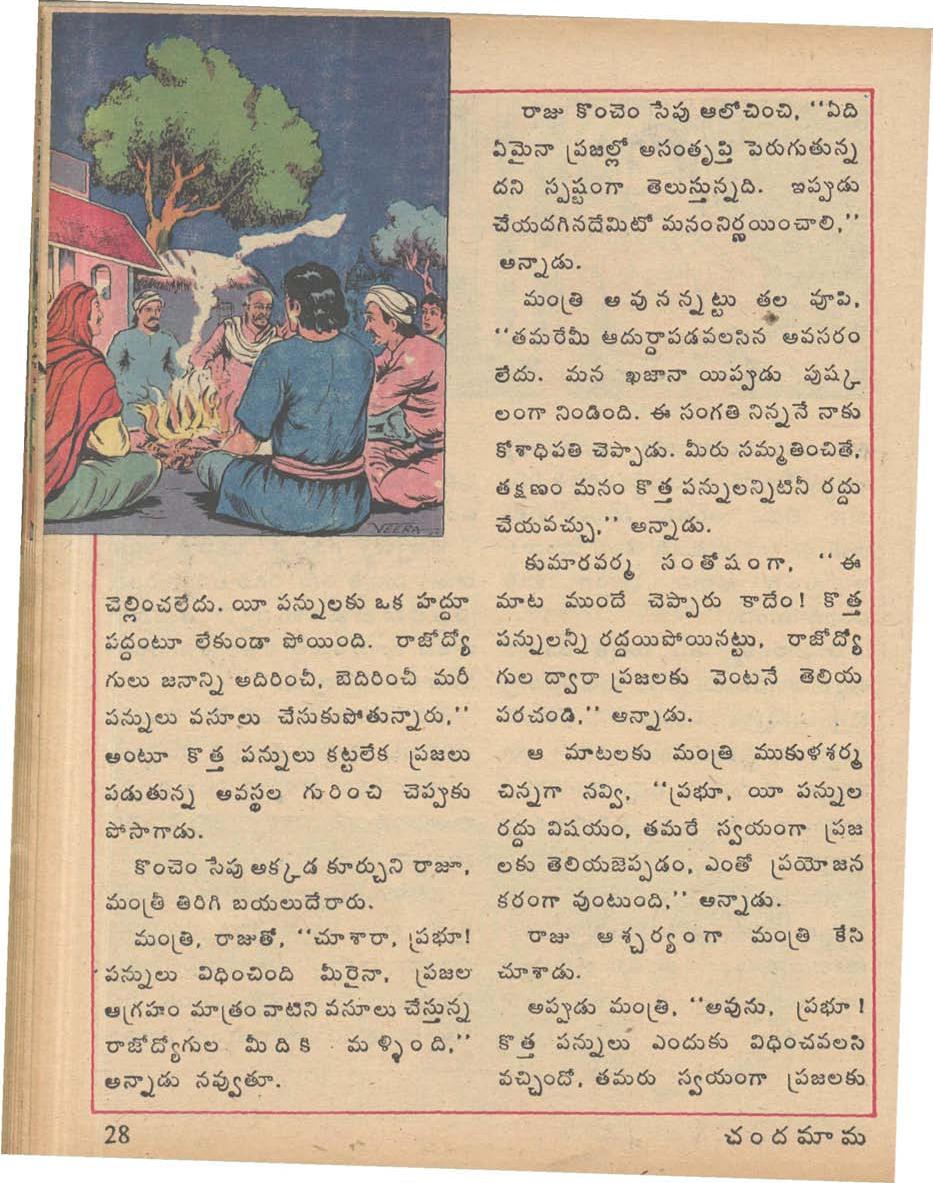 VEERA
చెల్లించలేదు. యీ పన్నులకు ఒక హద్దూ
పద్దంటూ లేకుండా పోయింది. రాజోద్యో
గులు జనాన్ని అదిరించీ, బెదిరించీ మరీ
పన్నులు వసూలు చేసుకుపోతున్నారు,''
అంటూ కొత్త పన్నులు కట్టలేక ప్రజలు
పడుతున్న అవస్థల గురించి చెప్పుకు
పోసాగాడు.
కొంచెం సేపు అక్కడ కూర్చుని రాజూ,
మంత్రీ తిరిగి బయలుదేరారు.
మంత్రి, రాజుతో, ''చూశారా, ప్రభూ!
పన్నులు విధించింది మీరైనా, ప్రజల
ఆగ్రహం మాత్రం వాటిని వసూలు చేస్తున్న
రాజోద్యోగుల మీదికి మళ్ళింది,''
అన్నాడు నవ్వుతూ.
రాజు కొంచెం సేపు ఆలోచించి, ''ఏది
ఏమైనా ప్రజల్లో అసంతృప్తి పెరుగుతున్న
దని స్పష్టంగా తెలుస్తున్నది. ఇప్పుడు
చేయదగినదేమిటో మనంనిర్ణయించాలి,''
అన్నాడు.
మంత్రి అవునన్నట్టు తల వూపి,
''తమరేమీ ఆదుర్దాపడవలసిన అవసరం
లేదు. మన ఖజానా యిప్పుడు పుష్క
లంగా నిండింది. ఈ సంగతి నిన్ననే నాకు
కోశాధిపతి చెప్పాడు. మీరు సమ్మతించితే,
తక్షణం మనం కొత్త పన్నులన్నిటినీ రద్దు
చేయవచ్చు,'' అన్నాడు.
కుమారవర్మ సంతోషంగా, ''ఈ
మాట ముందే చెప్పారు కాదేం! కొత్త
పన్నులన్నీ రద్దయిపోయినట్టు, రాజోద్యో
గుల ద్వారా ప్రజలకు వెంటనే తెలియ
పరచండి,'' అన్నాడు.
ఆ మాటలకు మంత్రి ముకుళశర్మ
చిన్నగా నవ్వి, ''ప్రభూ, యీ పన్నుల
రద్దు విషయం, తమరే స్వయంగా ప్రజ
లకు తెలియజెప్పడం, ఎంతో ప్రయోజన
కరంగా వుంటుంది,'' అన్నాడు.
రాజు ఆశ్చర్యంగా మంత్రి కేసి
చూశాడు.
అప్పుడు మంత్రి, ''అవును, ప్రభూ!
కొత్త పన్నులు ఎందుకు విధించవలసి
వచ్చిందో, తమరు స్వయంగా ప్రజలకు
28
చందమామ